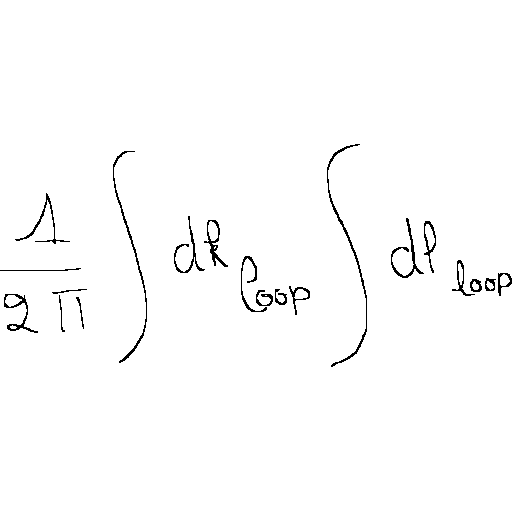 \frac{1}{2\pi} \int dk_{loop} \int dl_{loop}